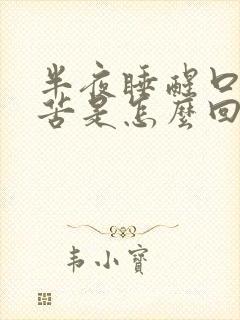 半夜睡醒口
苦是怎麼回
韦小寶